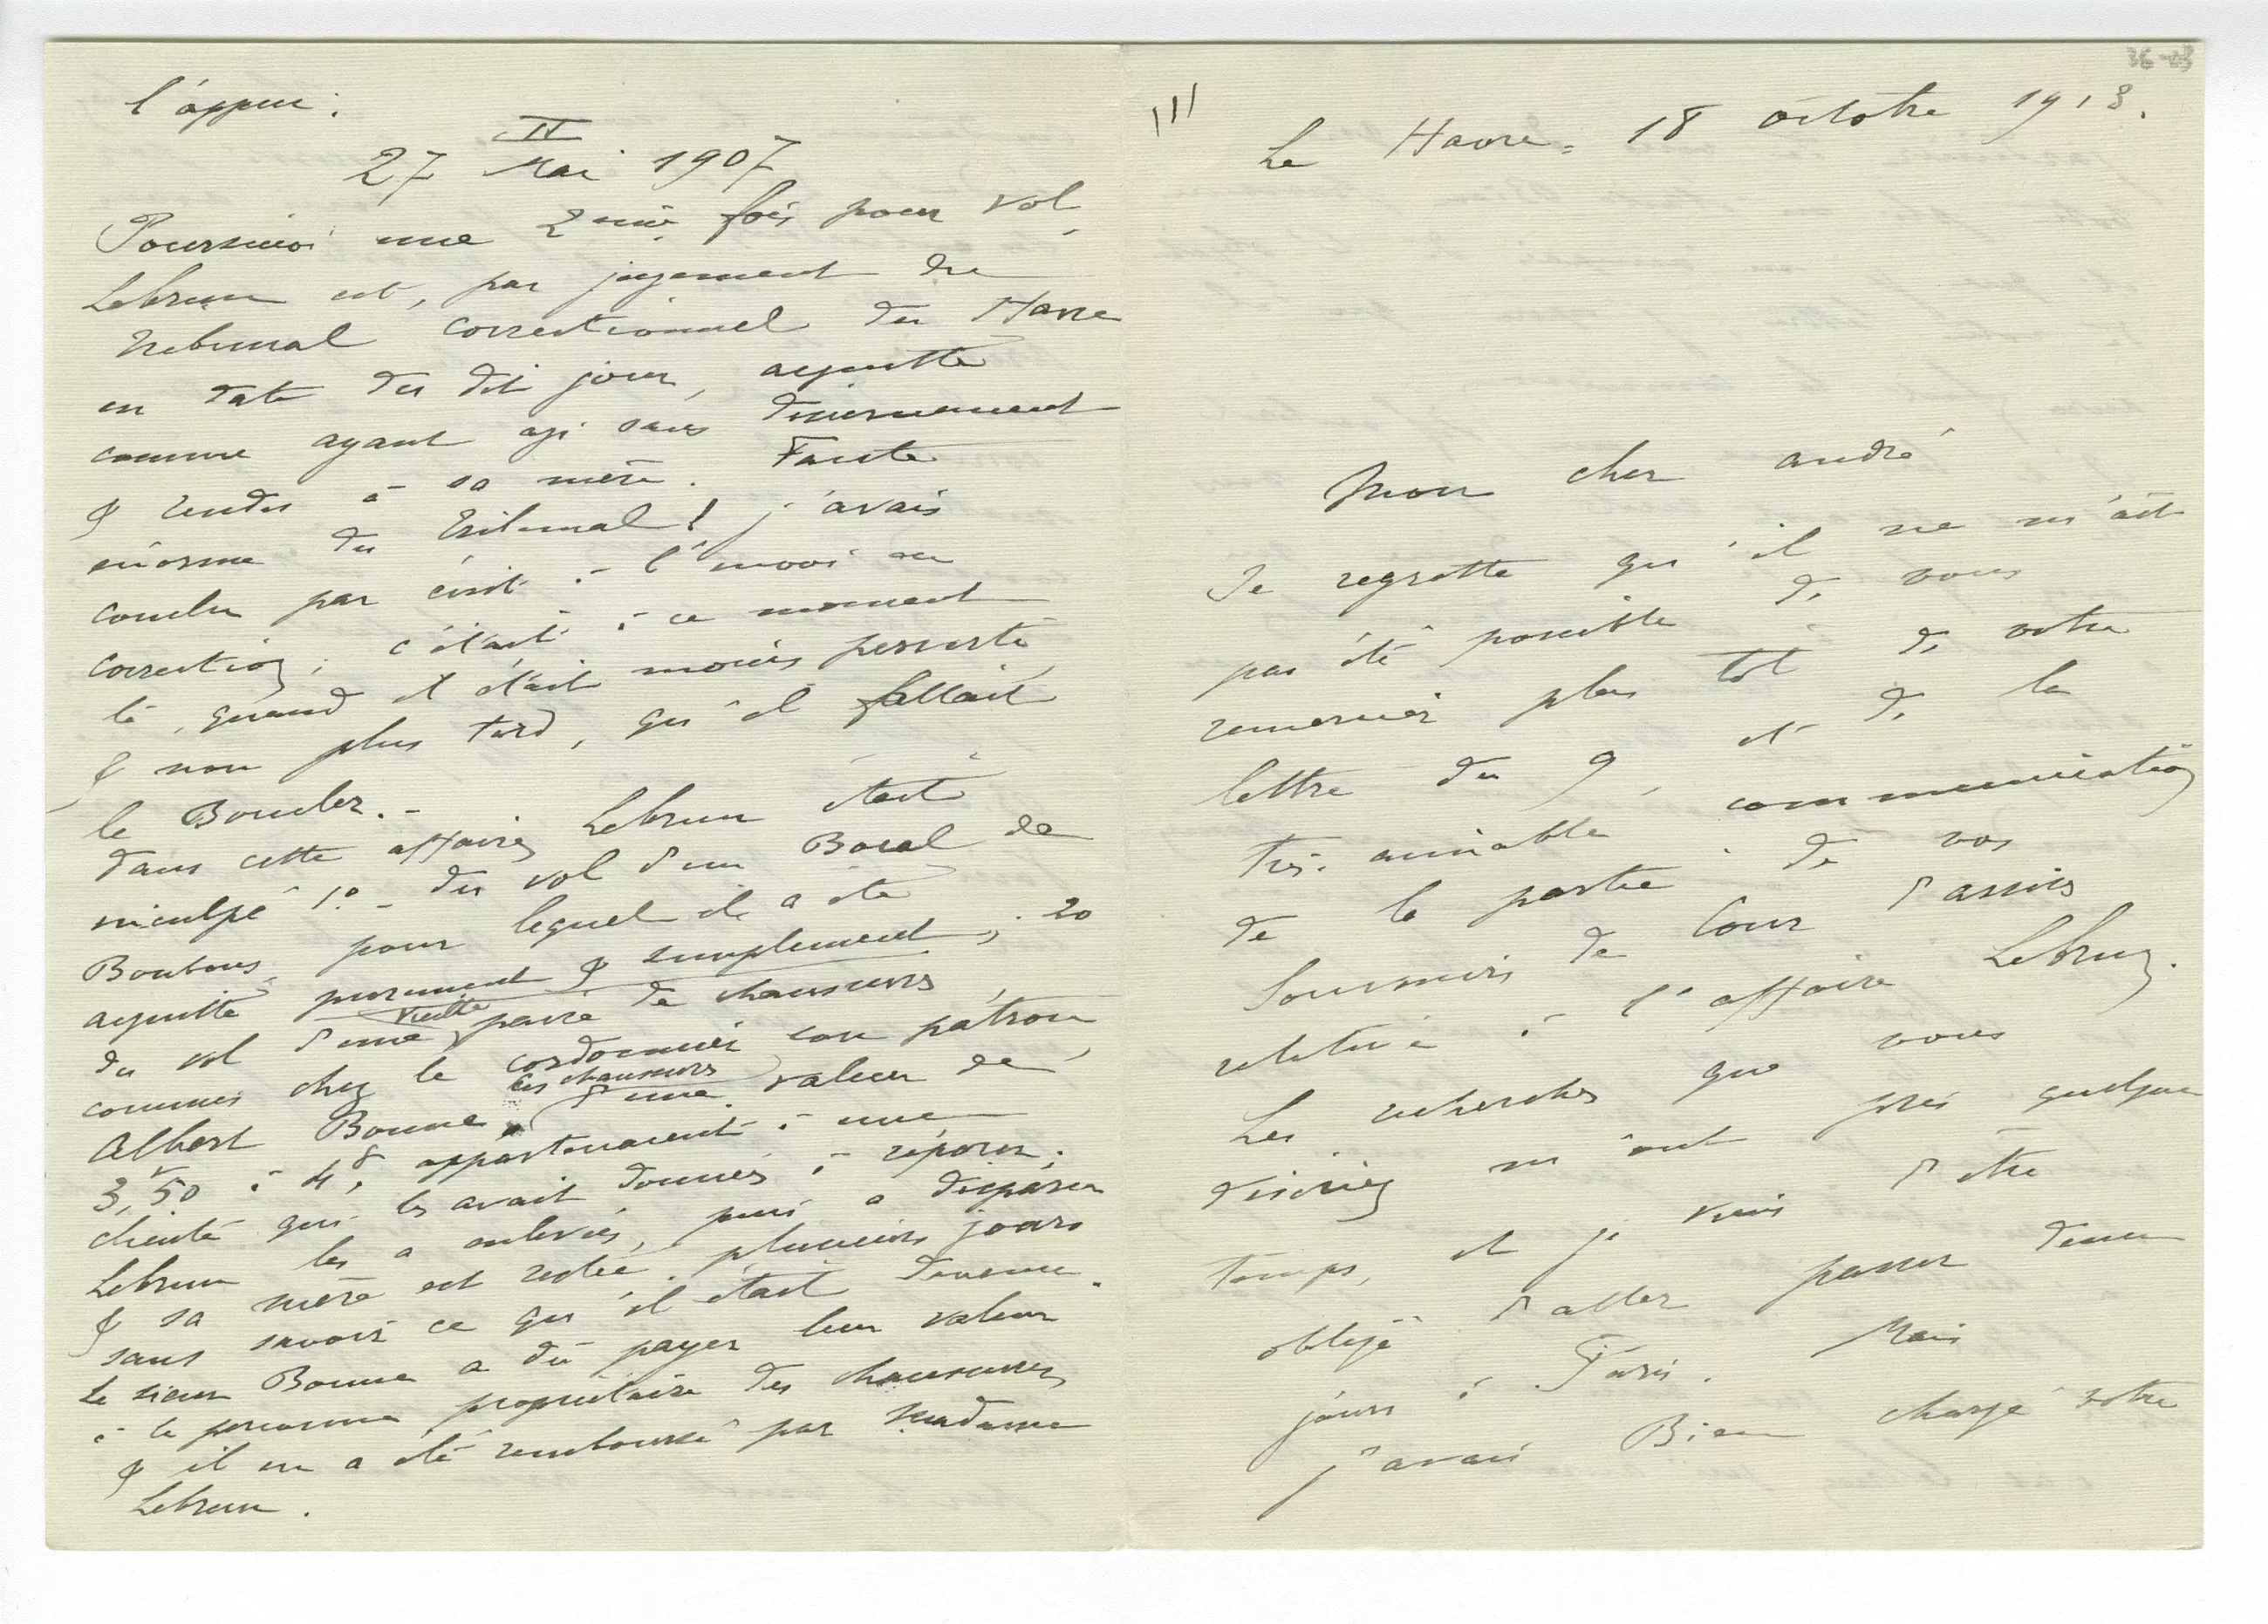 l'appui.
II
27 Mai 1907
Poursuivi une 2ème fois pour vol,
Lebrun est, par jugement du
Tribunal correctionnel du Havre
en date du dit jour, acquitté
comme ayant agi sans discernement
& rendu à sa mère. Faute
énorme du Tribunal! j'avais
conclu par écrit à l'envoi en
correction; c'était à ce moment
là, quand il était moins perverti,
& non plus tard, qu'il fallait
le Boucler. -
Dans cette affaire, Lebrun était
inculpé 1º - du vol d'un Bocal de
Bonbons, pour lequel il a été
acquitté purement & simplement; 2º
du vol d'une vieille paire de chaussures,
commis chez le cordonnier son patron,
Albert Bonne, ces chaussures d'une valeur de
3,50 à 4f, appartenaient à une
cliente qui les avait données à réparer;
Lebrun les a enlevées, puis a disparu
& sa mère est restée plusieurs jours
sans savoir ce qu'il était devenu.
Le sieur Bonne a dû payer leur valeur
à la personne propriétaire des chaussures
& il en a été remboursé par Madame
Lebrun.
36-03
III
Le Havre = 18 octobre 1913.
Mon cher André
Je regrette qu'il ne m'ait
pas été possible de vous
remercier plus tôt de votre
lettre du 9, et de la
très aimable communication
de la partie de vos
Souvenirs de Cour d'assises
relative à l'affaire Lebrun.
Les recherches que vous
désiriez m'ont pris quelque
temps, et je viens d'être
obligé d'aller passer deux
jours à Paris. Mais
j'avais Bien chargé votre